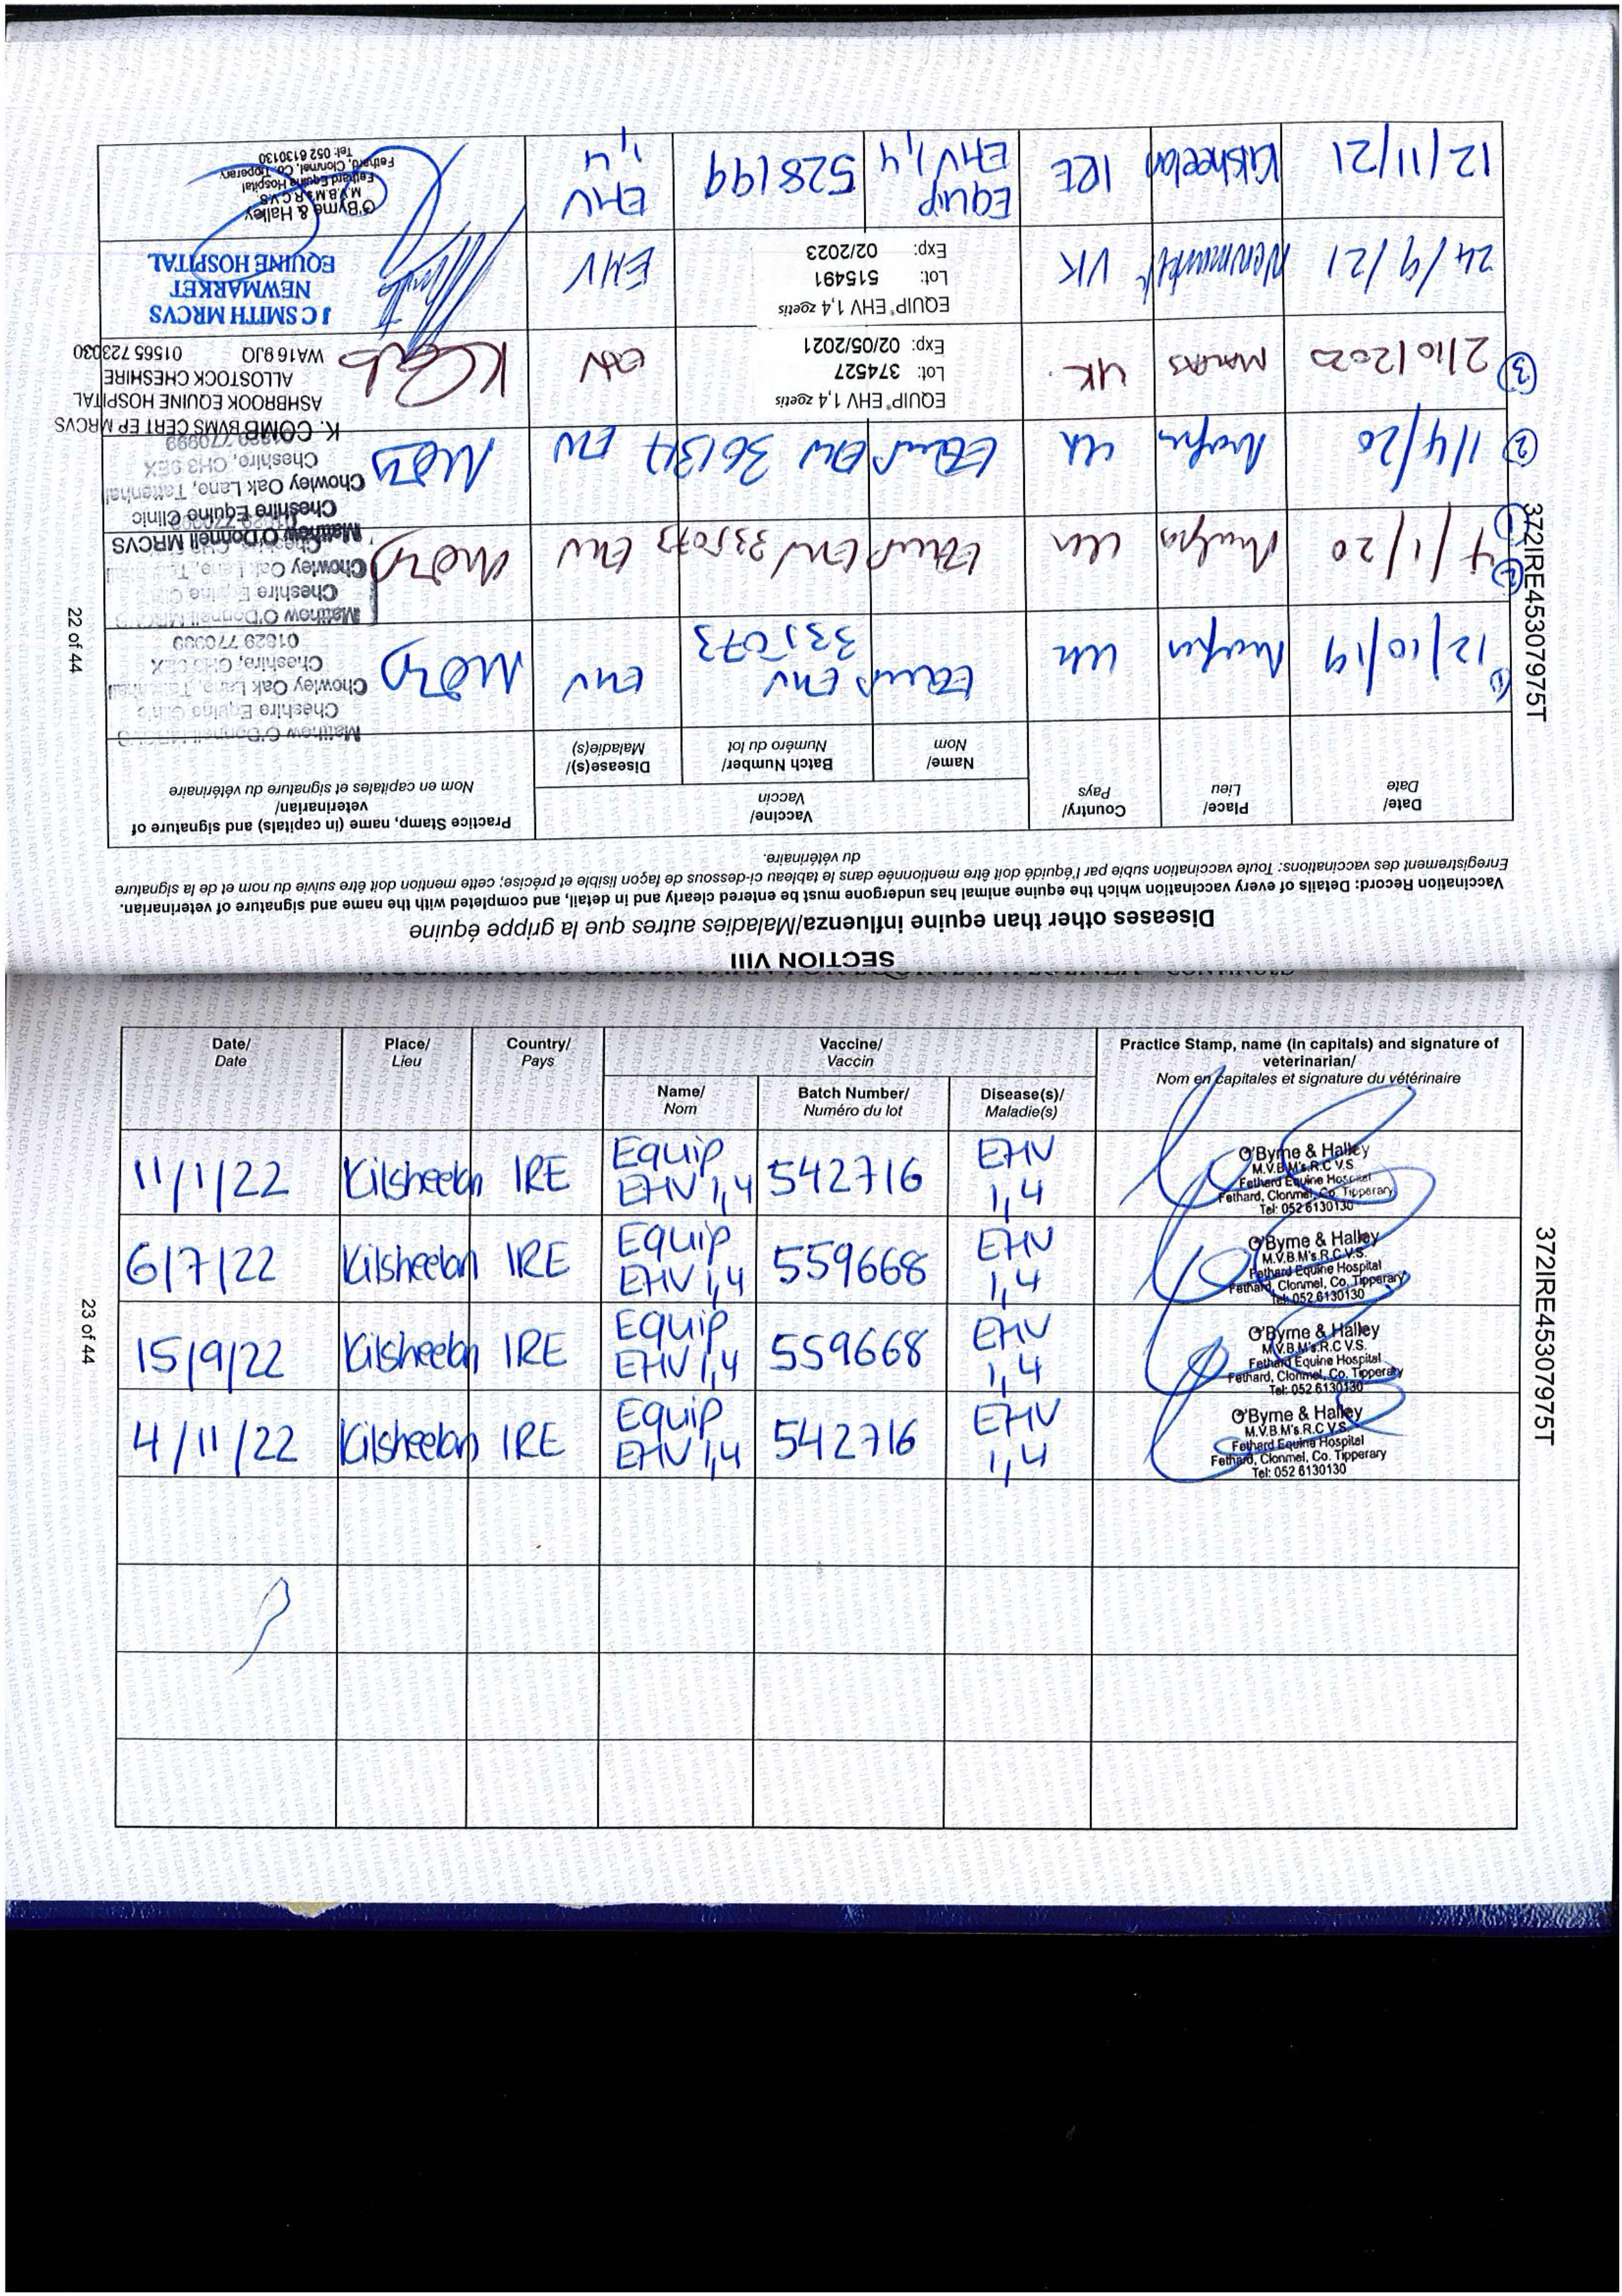 SECTION VIII
Diseases other than equine influenza/Maladies autres que la grippe équine
Vaccination Record: Details of every vaccination which the equine animal has undergone must be entered clearly and in detail, and completed with the name and signature of veterinarian.
Enregistrement des vaccinations: Toute vaccination subie par l'équidé doit être mentionnée dans le tableau ci-dessous de façon lisible et précise; cette mention doit être suivie du nom et de la signature
du vétérinaire.
Date/ Date
Place/ Lieu
Country/ Pays
Vaccine/ Vaccin
Name/ Nom
Batch Number/ Numéro du lot
Disease(s)/ Maladie(s)
Practice Stamp, name (in capitals) and signature of
veterinarian/
Nom en capitales et signature du vétérinaire
12/10/19 UK Equip EHV 335073 EHV
Matthew O'Donnell MRCVS
Cheshire Equine Clinic
Chowley Oak Lane, Tattenhall
Cheshire, CH3 9EX
01829 770999
4/1/20 UK Equip EHV 335073 EHV
Matthew O'Donnell MRCVS
Cheshire Equine Clinic
Chowley Oak Lane,
1/4/20 UK Equip EHV EHV
Matthew O'Donnell MRCVS
Cheshire Equine Clinic
Chowley Oak Lane, Tattenhall
Cheshire, CH3 9EX
01829 770999
2/10/2020 UK.
EQUIP® EHV 1,4 zoetis
Lot: 374527
Exp: 02/05/2021
EHV
K. COMB BVMS CERT EP MRCVS
ASHBROOK EQUINE HOSPITAL
ALLOSTOCK CHESHIRE
WA16 9JQ 01565 723030
24/9/21 Newmarket UK
EQUIP® EHV 1,4 zoetis
Lot: 515491
Exp: 02/2023
EHV
J C SMITH MRCVS
NEWMARKET
EQUINE HOSPITAL
12/11/21 Kilsheelan IRE Equip EHV 1,4 528199 EHV 1,4
O'Byrne & Halley
M.V.B.M's.R.C.V.S.
Fethard Equine Hospital
Fethard, Clonmel, Co. Tipperary
Tel: 052 6130130
22 of 44
372IRE45307975T
Date/ Date
Place/ Lieu
Country/ Pays
Vaccine/ Vaccin
Name/ Nom
Batch Number/ Numéro du lot
Disease(s)/ Maladie(s)
Practice Stamp, name (in capitals) and signature of
veterinarian/
Nom en capitales et signature du vétérinaire
11/1/22 Kilsheelan IRE Equip EHV 1,4 542716 EHV 1,4
O'Byrne & Halley
M.V.B.M's.R.C V.S.
Fethard Equine Hospital
Fethard, Clonmel, Co. Tipperary
Tel: 052 6130130
6/7/22 Kilsheelan IRE Equip EHV 1,4 559668 EHV 1,4
O'Byrne & Halley
M.V.B.M's.R.C.V.S.
Fethard Equine Hospital
Fethard, Clonmel, Co. Tipperary
Tel: 052 6130130
15/9/22 Kilsheelan IRE Equip EHV 1,4 559668 EHV 1,4
O'Byrne & Halley
M.V.B.M's.R.C V.S.
Fethard Equine Hospital
Fethard, Clonmel, Co. Tipperary
Tel: 052 6130130
4/11/22 Kilsheelan IRE Equip EHV 1,4 542716 EHV 1,4
O'Byrne & Halley
M.V.B.M's.R.C V.S.
Fethard Equine Hospital
Fethard, Clonmel, Co. Tipperary
Tel: 052 6130130
23 of 44
372IRE45307975T